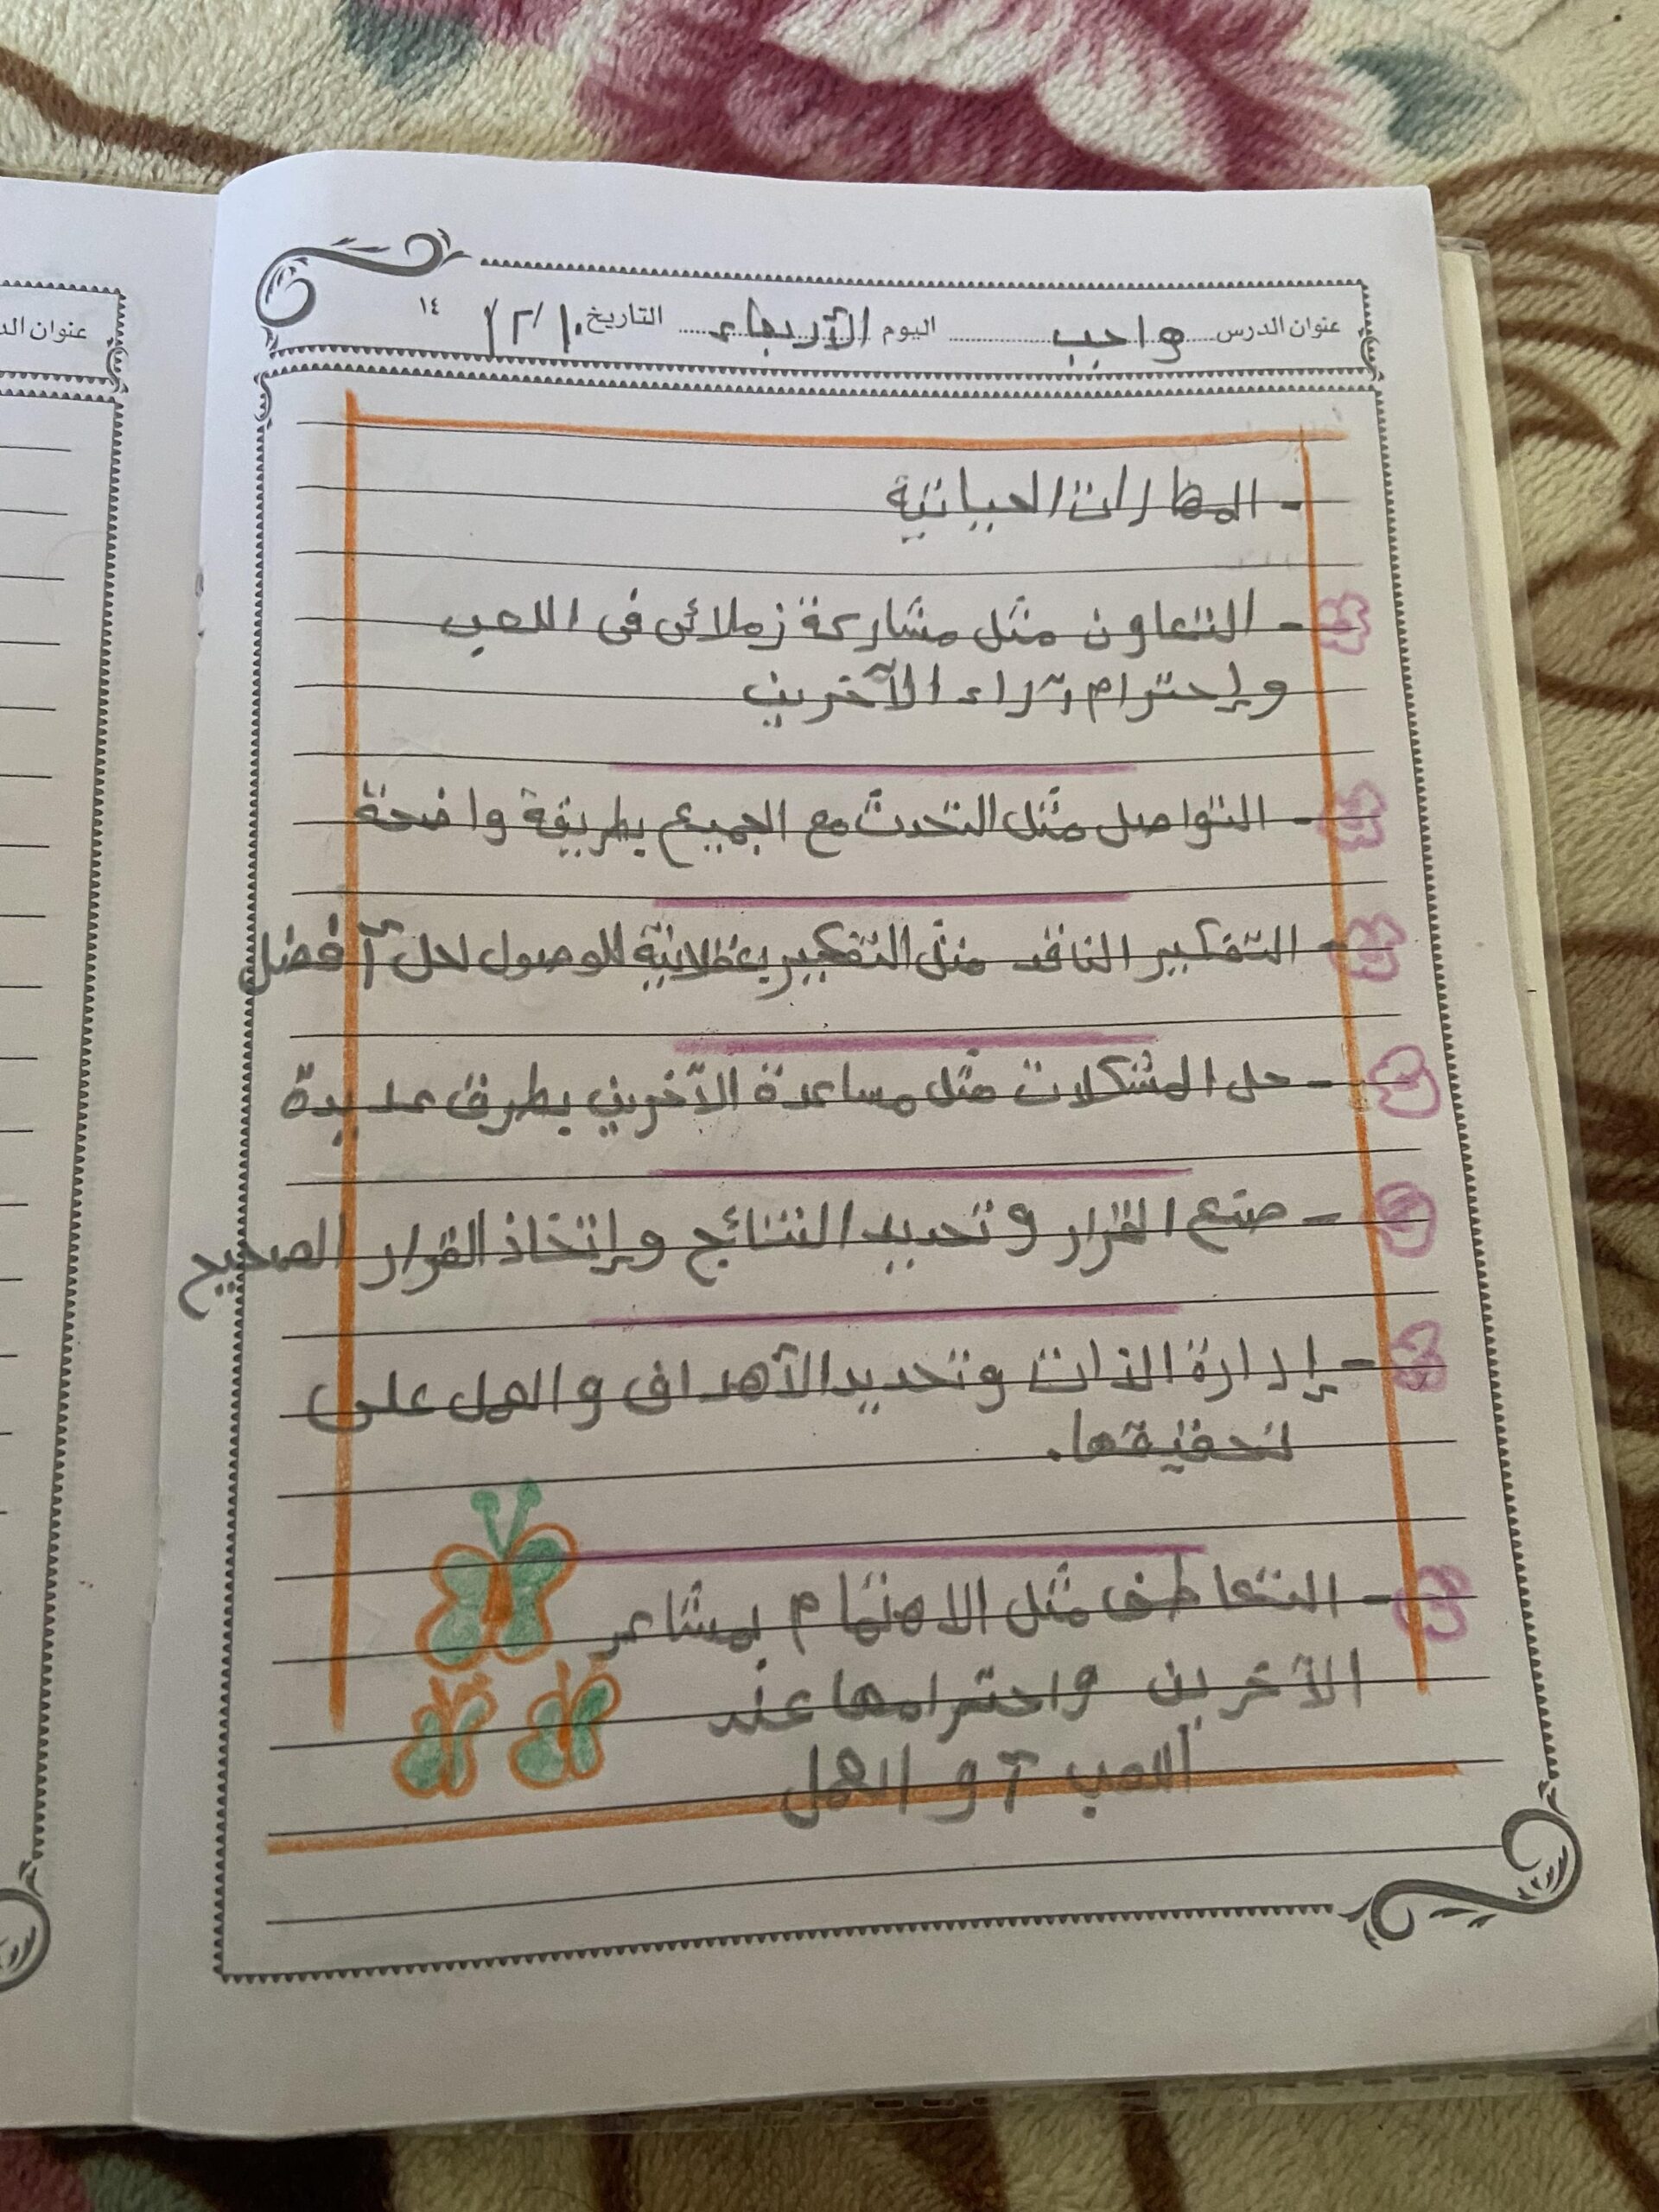 عنوان الدرس واجب اليوم الأربعاء التاريخ ١٠/١٢/ ١٤
- المهارات الحياتية
- التعاون مثل مشاركة زملائى فى اللعب
وإحترام آراء الآخرين
- التواصل مثل التحدث مع الجميع بطريقة واضحة
- التفكير الناقد مثل التفكير بعقلانية للوصول لحل أفضل
- حل المشكلات مثل مساعدة الآخرين بطرق عديدة
- صنع القرار وتحديد النتائج وإتخاذ القرار الصحيح
- إدارة الذات وتحديد الأهداف والعمل على
تحقيقها.
- التعاطف مثل الاهتمام بمشاعر
الآخرين واحترامها عند
اللعب أو العمل
عنوان الد